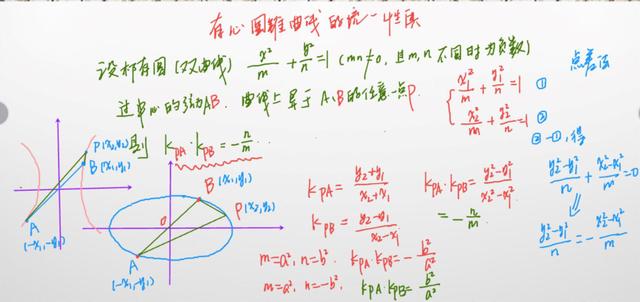 有心圆锥曲线的统一性质
设椭圆(双曲线) x²/m + y²/n = 1 (mn≠0, 且m,n不同时为负数)
过中心的弦为AB. 曲线上异于A、B的任意一点P.
则 k_PA · k_PB = -n/m
点差法
{ x₁²/m + y₁²/n = 1 ①
x₂²/m + y₂²/n = 1 ②
②-①,得
(y₂²-y₁²)/n + (x₂²-x₁²)/m = 0
⇓
(y₂²-y₁²)/n = -(x₂²-x₁²)/m
P(x₂,y₂)
B(x₁,y₁)
A
(-x₁,-y₁)
B(x₁,y₁)
P(x₂,y₂)
O
A
(-x₁,-y₁)
k_PA = (y₂+y₁)/(x₂+x₁)
k_PB = (y₂-y₁)/(x₂-x₁)
k_PA · k_PB = (y₂²-y₁²)/(x₂²-x₁²)
= -n/m
m=a², n=b². k_PA · k_PB = -b²/a²
m=a², n=-b². k_PA · k_PB = b²/a²